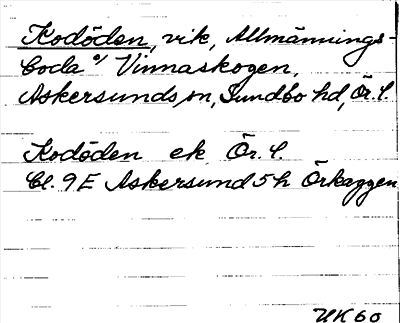 Kodöden, vik, Allmännings-
boda o/ Vinnaskogen,
Askersunds sn, Sundbo hd, Ör. l.
Kodöden ek. Ör. l.
Bl. 9 E Askersund 5 h Örkaggen
UK 60